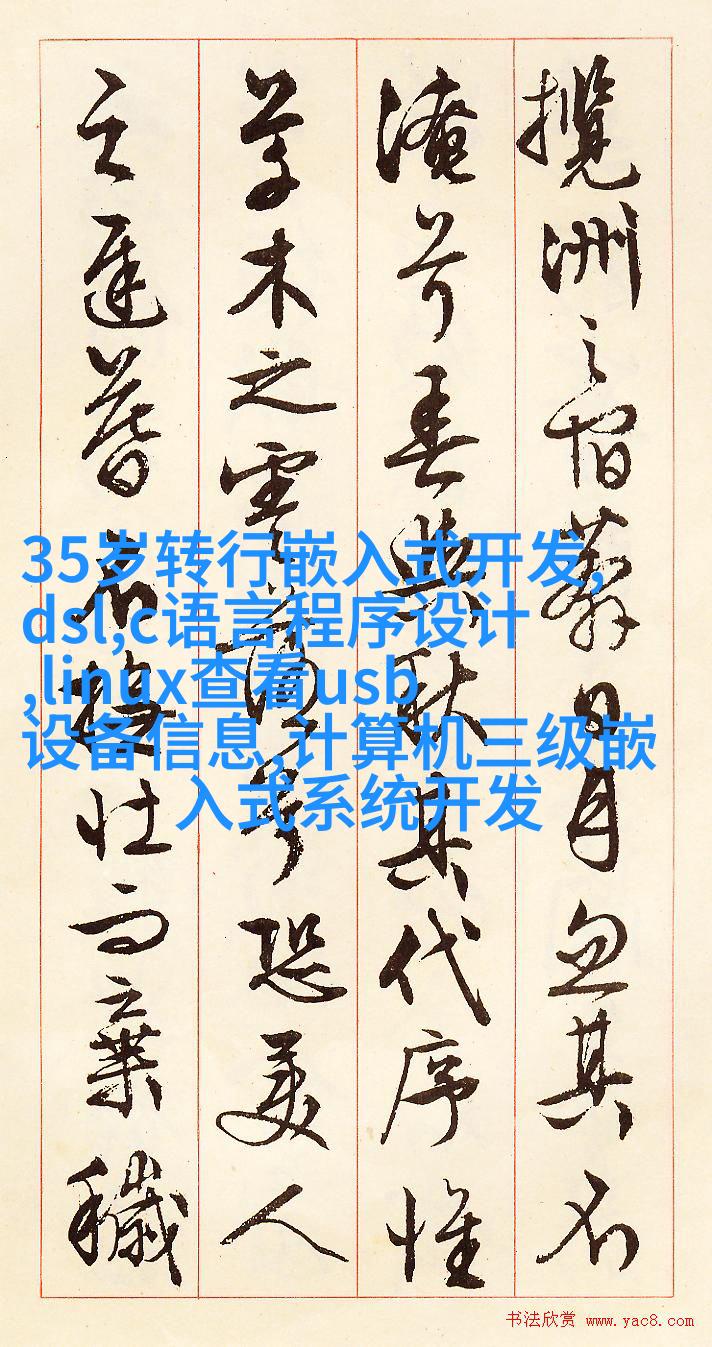 攬洲之宿莽日月忽其不
淹兮春與秋其代序惟
草木之零落兮恐美人
之遲暮不撫壯而棄穢
35岁转行嵌入式开发,
dsl,c语言程序设计
,linux查看usb
设备信息,计算机三级嵌
入式系统开发
书法欣赏 www.yac8.com